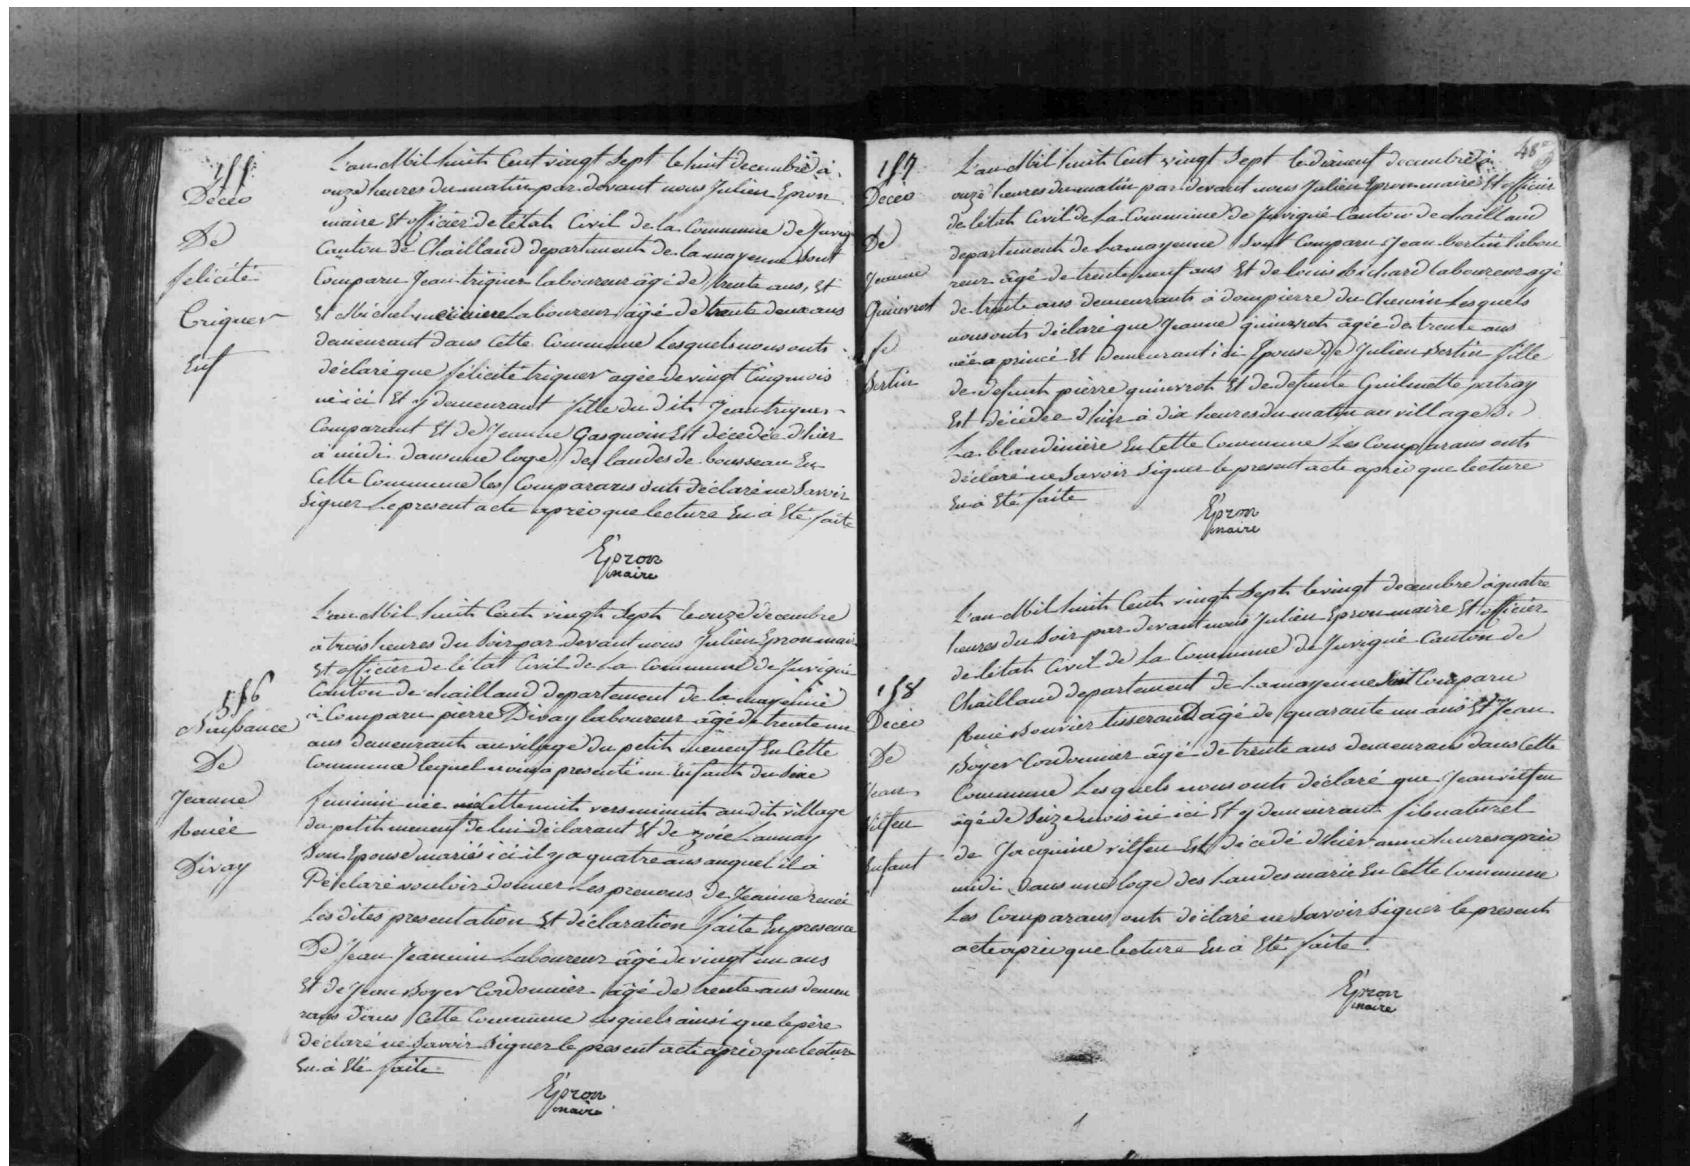 155
Décès
De
félicité
Triguer
Enf
L'an Mil huit Cent vingt Sept le huit decembre à
onze heures du matin par devant nous Julien Epron
maire Et officier de l'état Civil de la Commune de Juvigné
Canton de Chailland departement de la mayenne Sont
Comparu Jean triguer laboureur âgé de trente ans, Et
Et Michel laboureur âgé de trente deux ans
demeurant dans Cette Commune Lesquels nous onts
déclaré que félicité triguer agée de vingt Cinq mois
né ici Et y demeurant fille du dit Jean triguer
Comparant Et de Jeanne Gasquoin Est décédée d'hier
à midi dans une loge des landes de bousseau En
Cette Commune les Comparans onts déclaré ne Savoir
Signer Le present acte après que lecture En à Eté faite
Epron
maire
156
Naissance
De
Jeanne
Renée
Divay
L'an Mil huit Cent vingt Sept le onze decembre
à trois heures du Soir par devant nous Julien Epron maire
Et officier de l'état Civil de La Commune de Juvigné
Canton de chailland departement de la mayenne
à Comparu pierre Divay laboureur âgé de trente un
ans demeurant au village du petit meneuf En Cette
Commune lequel nous à presenté un Enfant du Sexe
feminin née Cette nuit vers minuit au dit village
du petit meneuf de lui déclarant Et de zoée Launay
Son Epouse mariés ici il y a quatre ans auquel il à
Déclaré vouloir donner Les prenoms de Jeanne renée
Les dites presentation Et déclaration faite En presence
De Jean Jeannin Laboureur âgé de vingt un ans
Et de Jean Boyer Cordonnier âgé de trente ans demeu
rans dans Cette Commune Lesquels ainsi que le père
déclaré ne Savoir Signer le present acte après que lecture
En à Eté faite
Epron
maire
48e
157
Décès
De
Jeanne
Quinvrot
fe
Bertin
L'an Mil huit Cent vingt Sept le dixneuf decembre à
onze heures du matin par devant nous Julien Epron maire Et officier
de l'état Civil de La Commune de Juvigné Canton de chailland
departement de la mayenne Sont Comparu Jean bertin labou
reur âgé de trente neuf ans Et de louis Richard laboureur agé
de trente ans demeurants à dompierre du Chemin Lesquels
nous onts déclaré que Jeanne quinvrot âgée de trente ans
née a princé Et demeurant ici Epouse de Julien Bertin fille
de defunt pierre quinvrot Et de defunte Guilmette patray
Est décédée d'hier à dix heures du matin au village de
La blandinière En Cette Commune Les Comparans onts
déclaré ne Savoir Signer le present acte après que lecture
En à Eté faite
Epron
maire
158
Décès
De
Jean
Vilfeu
Enfant
L'an Mil huit Cent vingt Sept le vingt decembre à quatre
heures du Soir par devant nous Julien Epron maire Et officier
de l'état Civil de La Commune de Juvigné Canton de
Chailland departement de La mayenne Sont Comparu
René Bouvier tisserand âgé de quarante un ans Et Jean
Boyer Cordonnier âgé de trente ans demeurans dans Cette
Commune Lesquels nous onts déclaré que Jean vilfeu
âgé de Seize mois né ici Et y demeurant fils naturel
de Jacquine vilfeu Est décédé d'hier heures après
midi dans une loge des Landes marie En Cette Commune
Les Comparans onts déclaré ne Savoir Signer le present
acte après que lecture En à Eté faite.
Epron
maire